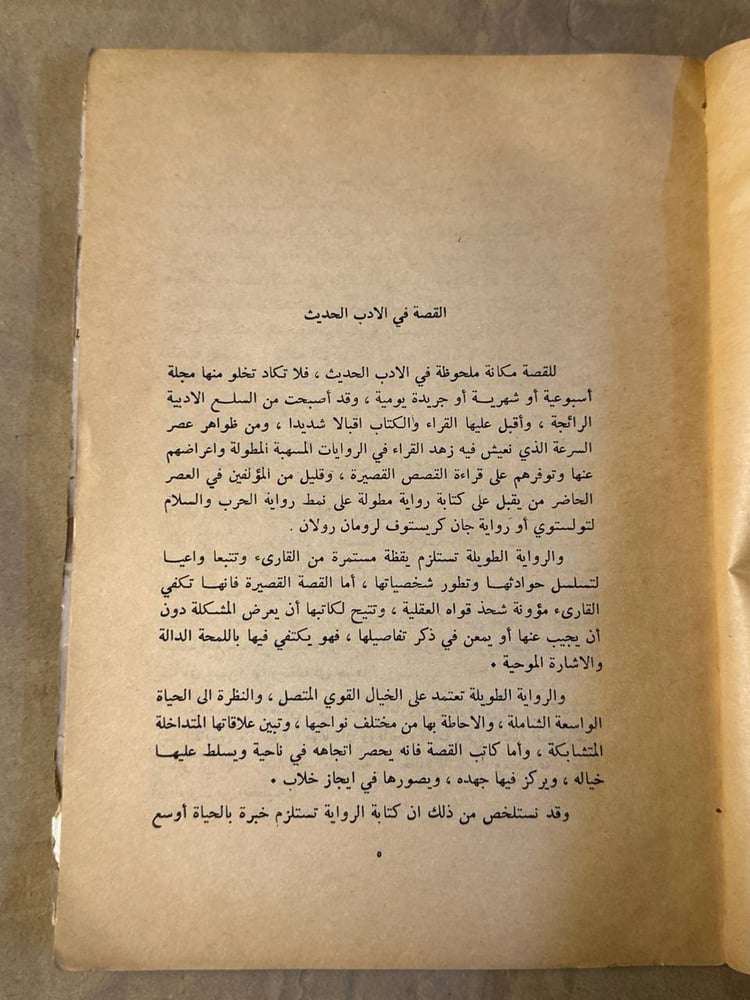 القصة في الادب الحديث
للقصة مكانة ملحوظة في الادب الحديث ، فلا تكاد تخلو منها مجلة
أسبوعية أو شهريــة أو جريدة يومية ، وقد أصبحت من السلــع الادبية
الرائجة ، وأقبل عليها القراء والكتاب اقبالا شديدا ، ومن ظواهر عصر
السرعة الذي نعيش فيه زهد القراء في الروايات المسهبة المطولة واعراضهم
عنها وتوفرهم على قراءة القصص القصيرة ، وقليل من المؤلفين في العصر
الحاضر من يقبل على كتابة رواية مطولة على نمط رواية الحرب والسلام
لتولستوي أو رواية جان كريستوف لرومان رولان .
والرواية الطويلة تستلزم يقظة مستمرة من القارىء وتتبعا واعيــا
لتسلسل حوادثهــا وتطور شخصياتها ، أما القصة القصيرة فانهــا تكفي
القارىء مؤونة شحذ قواه العقلية ، وتتيح لكاتبها أن يعرض المشكلة دون
أن يجيب عنها أو يمعن في ذكر تفاصيلها ، فهو يكتفي فيها باللمحة الدالة
والاشارة الموحية .
والرواية الطويلة تعتمد على الخيال القوي المتصل ، والنظرة الى الحياة
الواسعة الشاملة ، والاحاطة بها من مختلف نواحيها ، وتبين علاقاتها المتداخلة
المتشابكة ، وأما كاتب القصة فانه يحصر اتجاهه في ناحية ويسلط عليهــا
خياله ، ويركز فيها جهده ، ويصورها في ايجاز خلاب .
وقد نستلخص من ذلك ان كتابة الرواية تستلزم خبرة بالحياة أوسع
٥